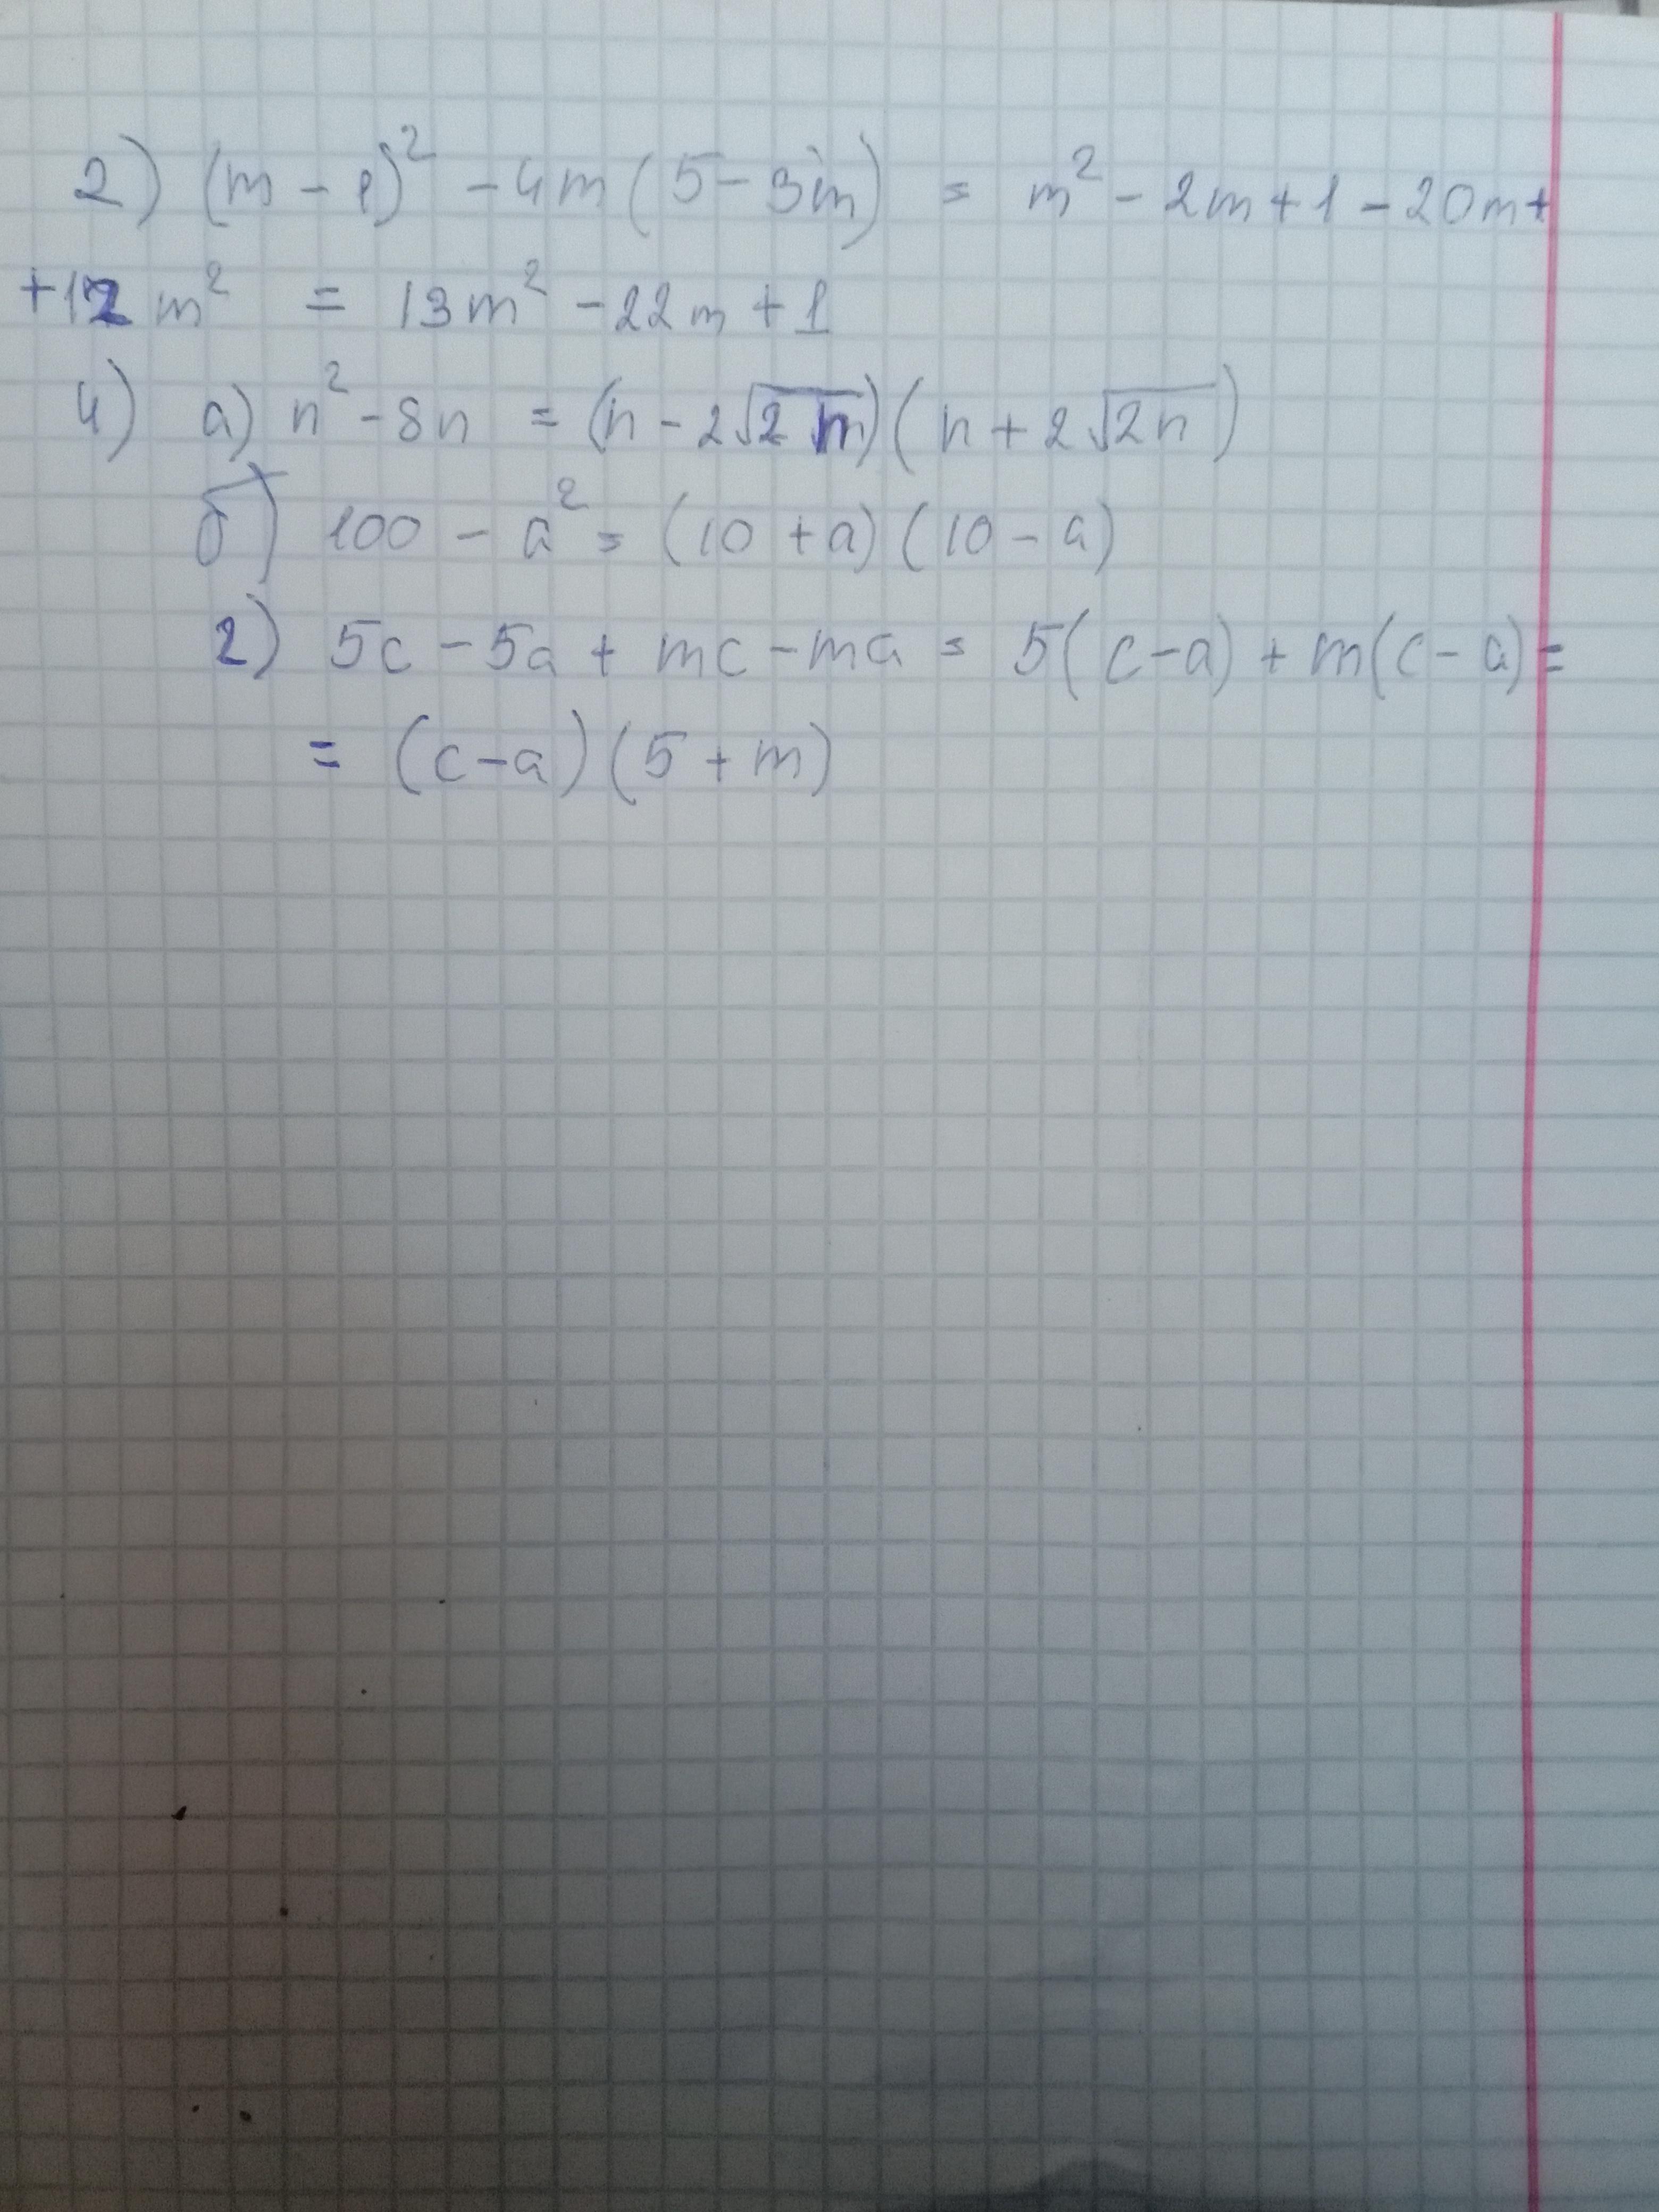 2) (m - 1)² - 4m(5 - 3m) = m² - 2m + 1 - 20m +
+ 12m² = 13m² - 22m + 1
4) а) n² - 8n = (n - 2√2n)(n + 2√2n)
б) 100 - a² = (10 + a)(10 - a)
2) 5c - 5a + mc - ma = 5(c - a) + m(c - a) =
= (c - a)(5 + m)